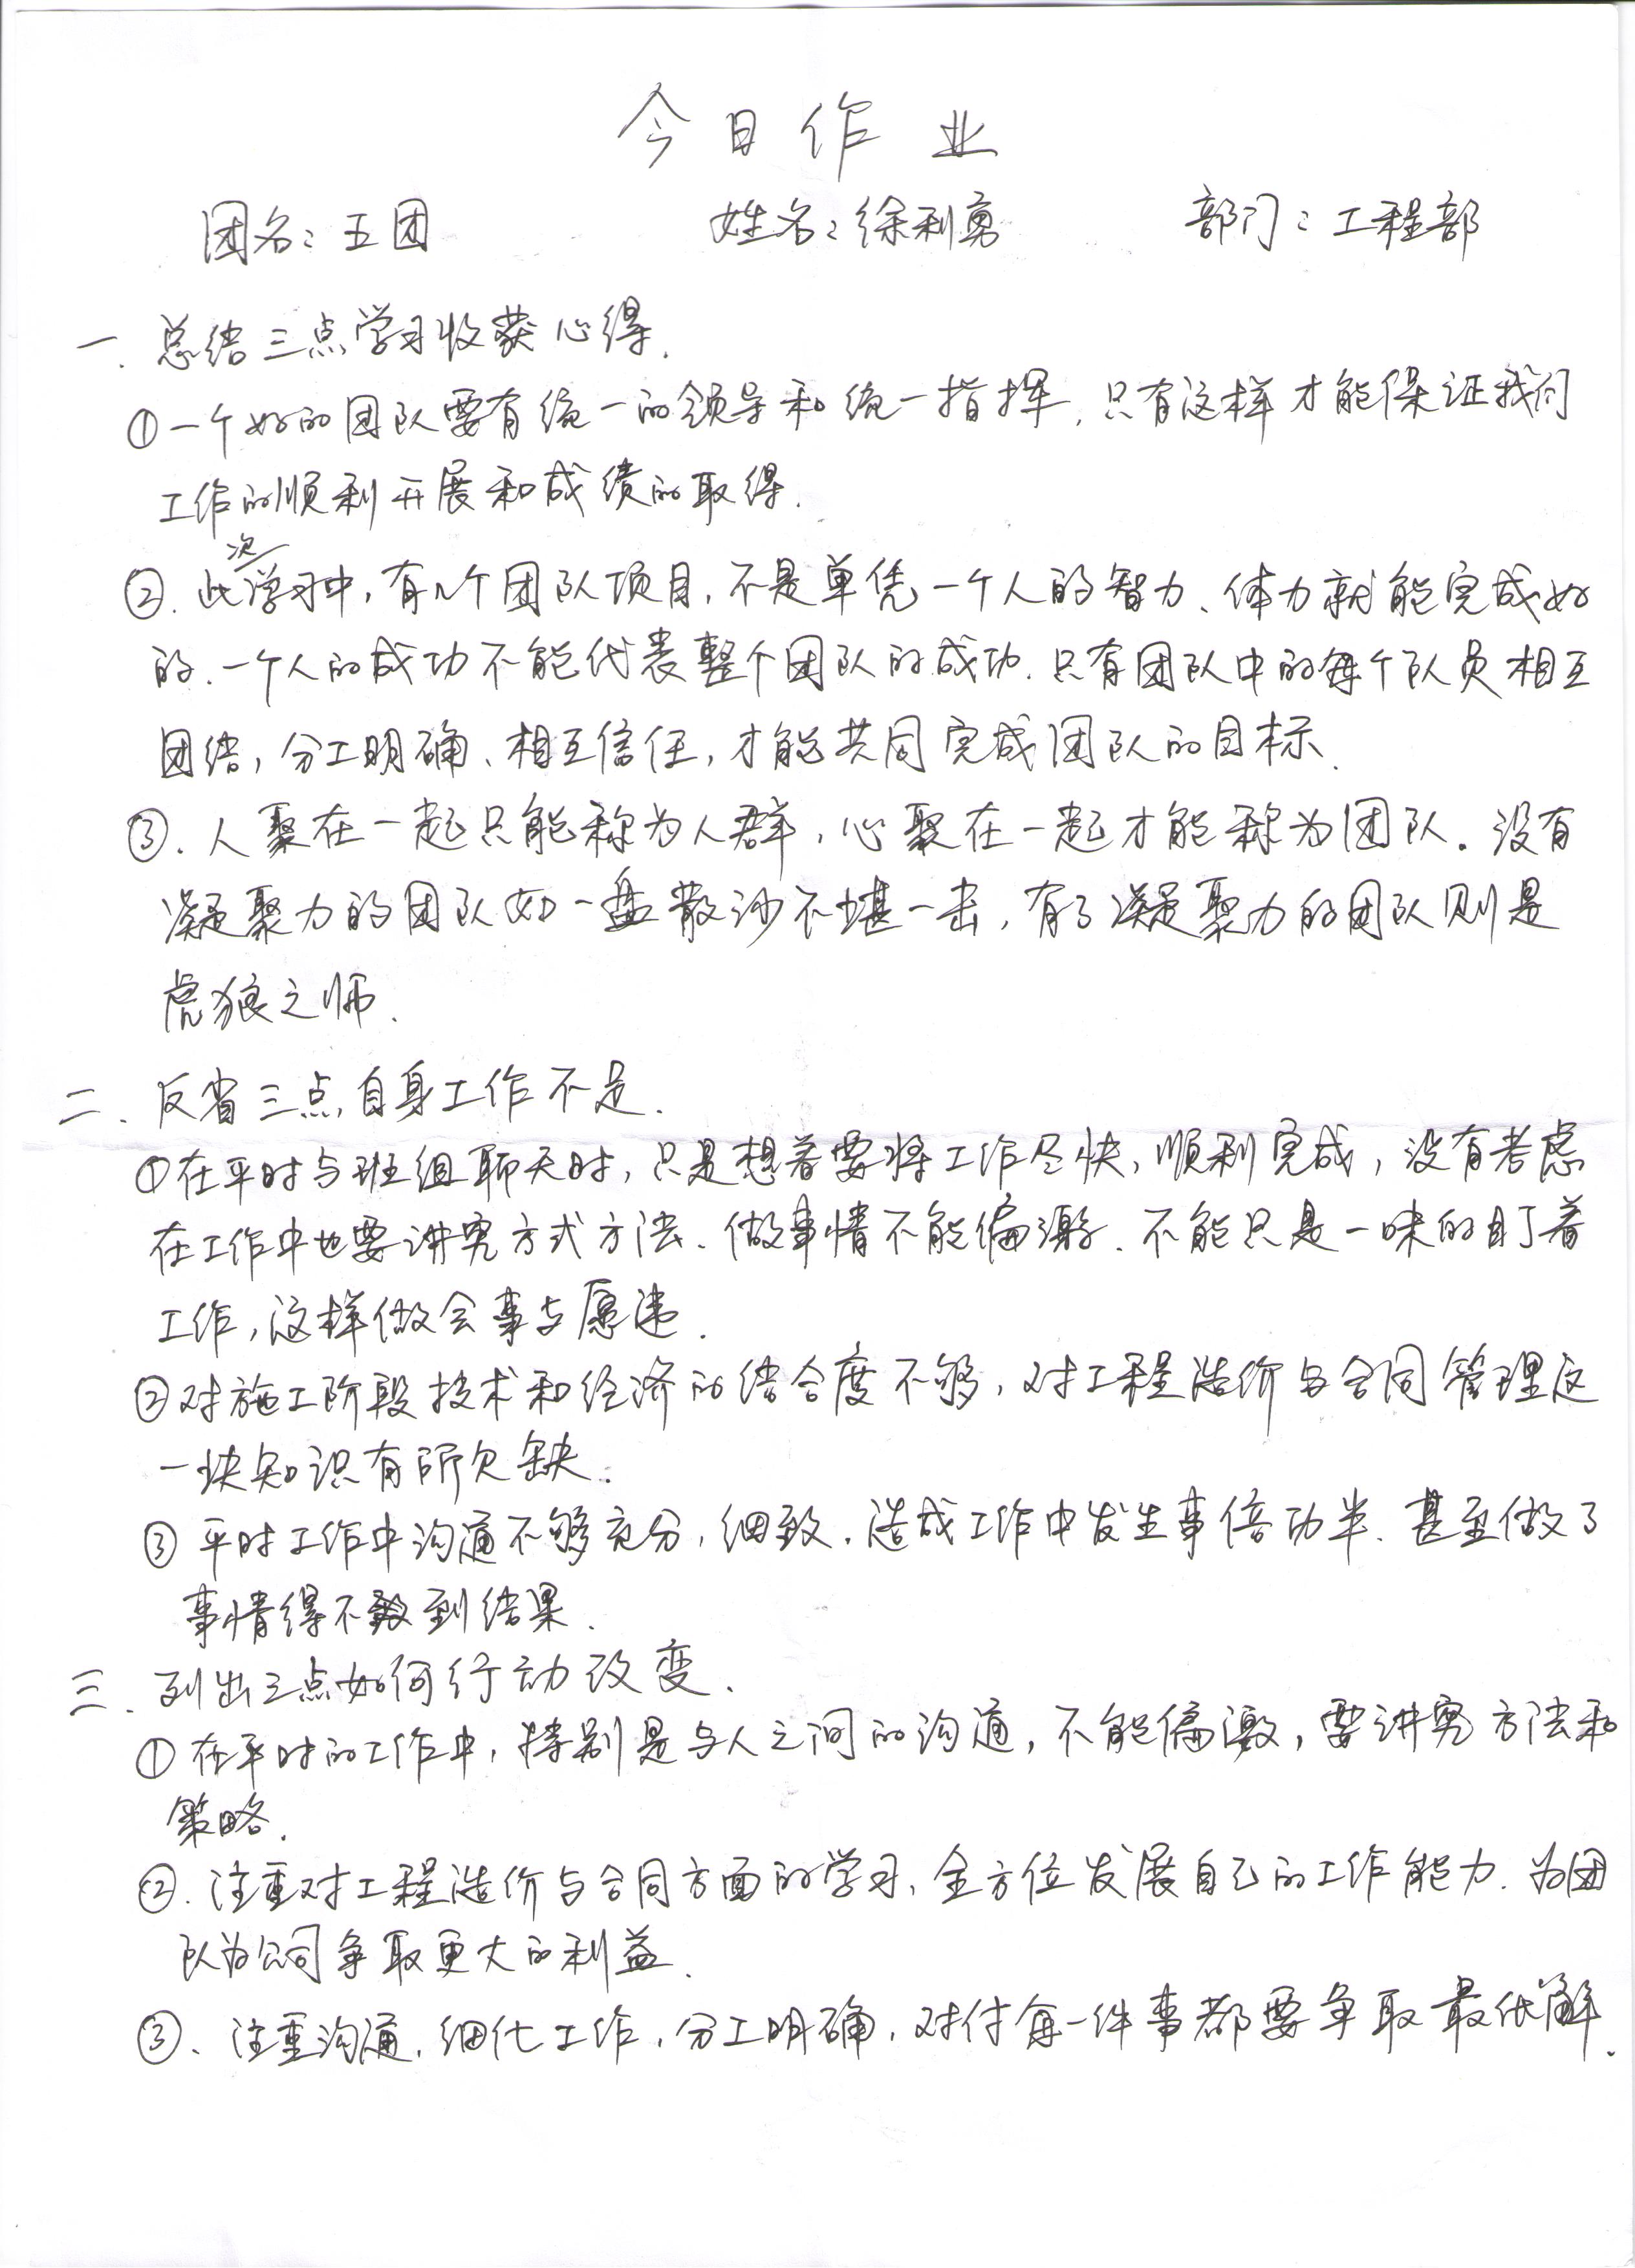 今日作业
团名：五团 姓名：徐利勇 部门：工程部
一．总结三点学习收获心得．
①一个好的团队要有统一的领导和统一指挥．只有这样才能保证我们
工作的顺利开展和成绩的取得．
②．此次学习中，有几个团队项目，不是单凭一个人的智力、体力就能完成好
的．一个人的成功不能代表整个团队的成功．只有团队中的每个队员相互
团结，分工明确、相互信任，才能共同完成团队的目标．
③．人聚在一起只能称为人群，心聚在一起才能称为团队．没有
凝聚力的团队如一盘散沙不堪一击，有了凝聚力的团队则是
虎狼之师．
二．反省三点自身工作不足．
①在平时与班组聊天时，只是想着要将工作尽快，顺利完成，没有考虑
在工作中也要讲究方式方法．做事情不能偏激．不能只是一味的盯着
工作，这样做会事与愿违．
②对施工阶段技术和经济的结合度不够，对工程造价与合同管理这
一块知识有所欠缺．
③平时工作中沟通不够充分，细致．造成工作中发生事倍功半．甚至做了
事情得不到结果．
三．列出三点如何行动改变．
①在平时的工作中，特别是与人之间的沟通，不能偏激，要讲究方法和
策略．
②．注重对工程造价与合同方面的学习，全方位发展自己的工作能力．为团
队为公司争取更大的利益．
③、注重沟通．细化工作，分工明确，对付每一件事都要争取最优解．